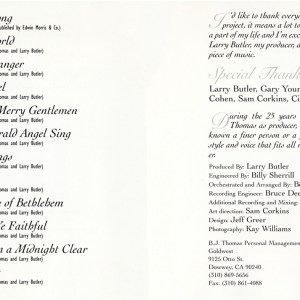 ong
ublished by Edwin Morris & Co.)
orld
omas and Larry Butler)
anger
omas and Larry Butler)
el
omas and Larry Butler)
Merry Gentlemen
omas and Larry Butler)
erald Angel Sing
omas and Larry Butler)
ngs
omas and Larry Butler)
n of Bethlehem
omas and Larry Butler)
Ye Faithful
omas and Larry Butler)
n a Midnight Clear
omas and Larry Butler)
omas and Larry Butler)
I'd like to thank everyo
project, it means a lot to
a part of my life and I'm exci
Larry Butler, my producer, a
piece of music.
Special Thank
Larry Butler, Gary Youn
Cohen, Sam Corkins, Ci
During the 25 years
Thomas as producer,
known a finer person or a
style and voice that fits all
Produced By: Larry Butler
Engineered By: Billy Sherrill
Orchestrated and Arranged By: Be
Recording Engineer: Bruce Dee
Additional Recording and Mixing:
Art direction: Sam Corkins
Design: Jeff Greer
Photography: Kay Williams
B.J. Thomas Personal Management
Goldwest
9125 Otto St.
Downey, CA 90240
(310) 869-5656
Fax: (310) 861-4088